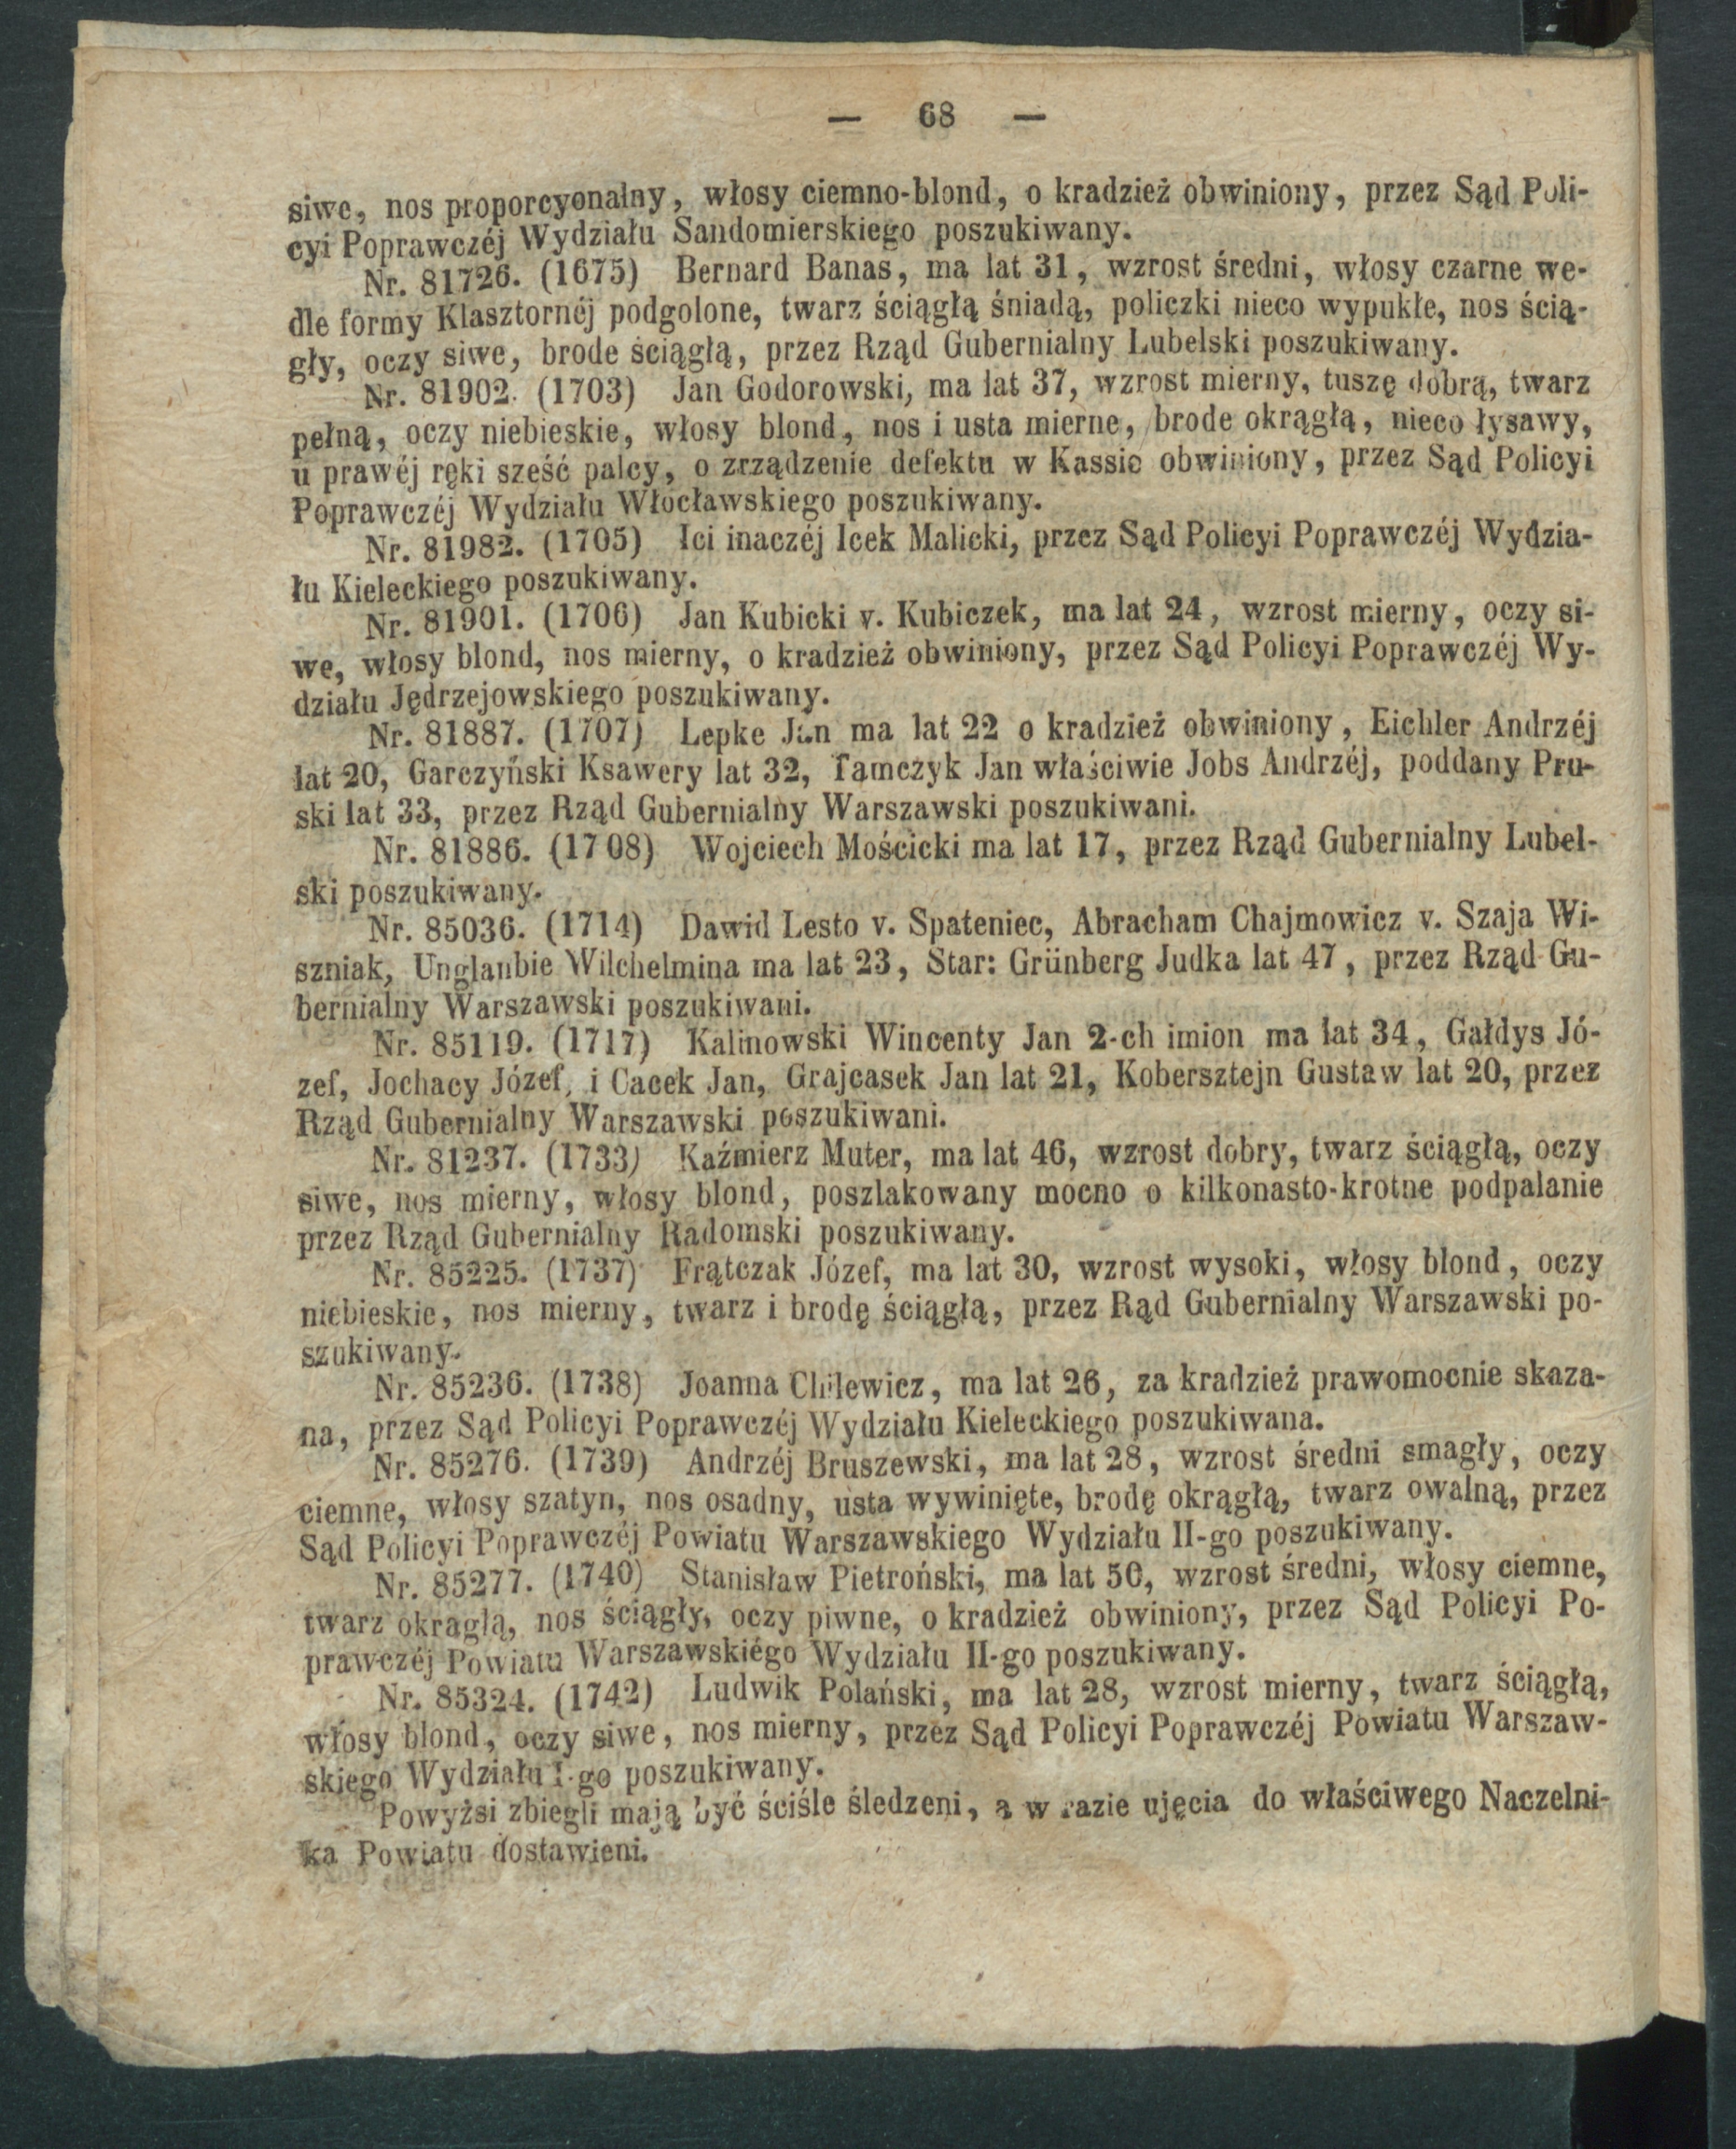 — 68 —
siwe, nos proporcyonalny, włosy ciemno-blond, o kradzież obwiniony, przez Sąd Poli-
cyi Poprawczéj Wydziału Sandomierskiego poszukiwany.
Nr. 81726. (1675) Bernard Banas, ma lat 31, wzrost średni, włosy czarne we-
dle formy Klasztornéj podgolone, twarz ściągłą śniadą, policzki nieco wypukłe, nos ścią-
gły, oczy siwe, brode ściągłą, przez Rząd Gubernialny Lubelski poszukiwany.
Nr. 81902. (1703) Jan Godorowski, ma lat 37, wzrost mierny, tuszę dobrą, twarz
pełną, oczy niebieskie, włosy blond, nos i usta mierne, brode okrągłą, nieco łysawy,
u prawéj ręki sześć palcy, o zrządzenie defektu w Kassie obwiniony, przez Sąd Policyi
Poprawczéj Wydziału Włocławskiego poszukiwany.
Nr. 81982. (1705) Ici inaczéj Icek Malicki, przez Sąd Policyi Poprawczéj Wydzia-
łu Kieleckiego poszukiwany.
Nr. 81901. (1706) Jan Kubicki v. Kubiczek, ma lat 24, wzrost mierny, oczy si-
we, włosy blond, nos mierny, o kradzież obwiniony, przez Sąd Policyi Poprawczéj Wy-
działu Jędrzejowskiego poszukiwany.
Nr. 81887. (1707) Lepke Jan ma lat 22 o kradzież obwiniony, Eichler Andrzéj
lat 20, Garczyński Ksawery lat 32, Tamczyk Jan właściwie Jobs Andrzéj, poddany Pru-
ski lat 33, przez Rząd Gubernialny Warszawski poszukiwani.
Nr. 81886. (1708) Wojciech Mościcki ma lat 17, przez Rząd Gubernialny Lubel-
ski poszukiwany.
Nr. 85036. (1714) Dawid Lesto v. Spateniec, Abracham Chajmowicz v. Szaja Wi-
szniak, Unglanbie Wilchelmina ma lat 23, Star: Grünberg Judka lat 47, przez Rząd Gu-
bernialny Warszawski poszukiwani.
Nr. 85119. (1717) Kalinowski Wincenty Jan 2-ch imion ma lat 34, Gałdys Jó-
zef, Jochacy Józef, i Cacek Jan, Grajcasek Jan lat 21, Kobersztejn Gustaw lat 20, przez
Rząd Gubernialny Warszawski poszukiwani.
Nr. 81237. (1733) Kaźmierz Muter, ma lat 46, wzrost dobry, twarz ściągłą, oczy
siwe, nos mierny, włosy blond, poszlakowany mocno o kilkonasto-krotne podpalanie
przez Rząd Gubernialny Radomski poszukiwany.
Nr. 85225. (1737) Frątczak Józef, ma lat 30, wzrost wysoki, włosy blond, oczy
niebieskie, nos mierny, twarz i brodę ściągłą, przez Rąd Gubernialny Warszawski po-
szukiwany.
Nr. 85236. (1738) Joanna Chilewicz, ma lat 26, za kradzież prawomocnie skaza-
na, przez Sąd Policyi Poprawczéj Wydziału Kieleckiego poszukiwana.
Nr. 85276. (1739) Andrzéj Bruszewski, ma lat 28, wzrost średni smagły, oczy
ciemne, włosy szatyn, nos osadny, usta wywinięte, brodę okrągłą, twarz owalną, przez
Sąd Policyi Poprawczéj Powiatu Warszawskiego Wydziału II-go poszukiwany.
Nr. 85277. (1740) Stanisław Pietroński, ma lat 50, wzrost średni, włosy ciemne,
twarz okrągłą, nos ściągły, oczy piwne, o kradzież obwiniony, przez Sąd Policyi Po-
prawczéj Powiatu Warszawskiégo Wydziału II-go poszukiwany.
Nr. 85324. (1742) Ludwik Polański, ma lat 28, wzrost mierny, twarz ściągłą,
włosy blond, oczy siwe, nos mierny, przez Sąd Policyi Poprawczéj Powiatu Warszaw-
skiego Wydziału I-go poszukiwany.
Powyżsi zbiegli mają być ściśle śledzeni, a w razie ujęcia do właściwego Naczelni-
ka Powiatu dostawieni.